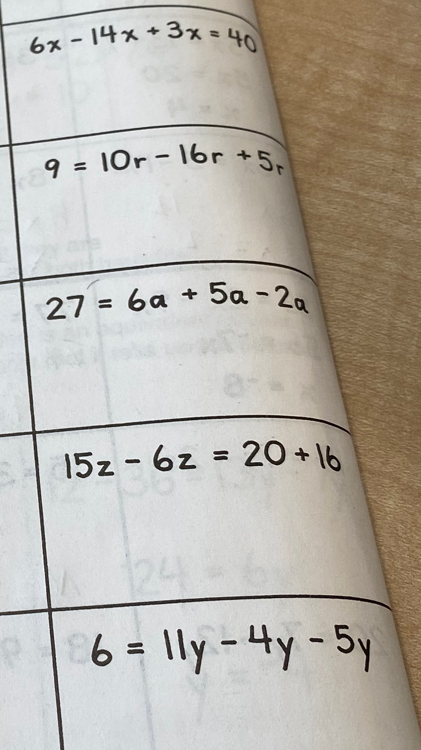 6x - 14x + 3x = 40
9 = 10r - 16r + 5r
27 = 6a + 5a - 2a
15z - 6z = 20 + 16
6 = 11y - 4y - 5y